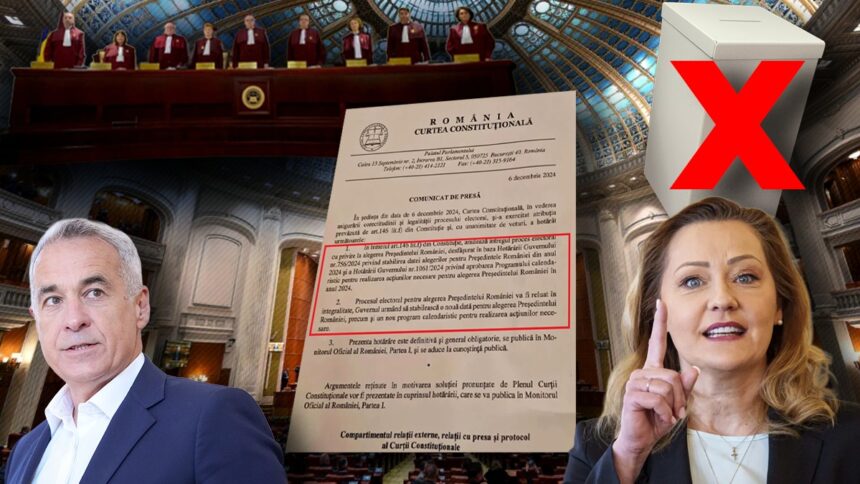 ROMÂNIA
CURTEA CONSTITUȚIONALĂ
Palatul Parlamentului
Calea 13 Septembrie nr. 2, Intrarea B1, Sectorul 5, 050725 București 40, România
Telefon: (+40-21) 414-2121 Fax: (+40-21) 315-9164
6 decembrie 2024
COMUNICAT DE PRESĂ
În ședința din data de 6 decembrie 2024, Curtea Constituțională, în vederea
asigurării corectitudinii și legalității procesului electoral, și-a exercitat atribuția
prevăzută de art.146 lit.f) din Constituție și, cu unanimitate de voturi, a hotărât
următoarele:
1. În temeiul art.146 lit.f) din Constituție, anulează întregul proces electoral
cu privire la alegerea Președintelui României, desfășurat în baza Hotărârii Guvernului
nr.756/2024 privind stabilirea datei alegerilor pentru Președintele României din anul
2024 și a Hotărârii Guvernului nr.1061/2024 privind aprobarea Programului calenda-
ristic pentru realizarea acțiunilor necesare pentru alegerea Președintelui României în
anul 2024.
2. Procesul electoral pentru alegerea Președintelui României va fi reluat în
integralitate, Guvernul urmând să stabilească o nouă dată pentru alegerea Președintelui
României, precum și un nou program calendaristic pentru realizarea acțiunilor nece-
sare.
3. Prezenta hotărâre este definitivă și general obligatorie, se publică în Mo-
nitorul Oficial al României, Partea I, și se aduce la cunoștință publică.
Argumentele reținute în motivarea soluției pronunțate de Plenul Curții
Constituționale vor fi prezentate în cuprinsul hotărârii, care se va publica în Monitorul
Oficial al României, Partea I.
Compartimentul relații externe, relații cu presa și protocol
al Curții Constituționale